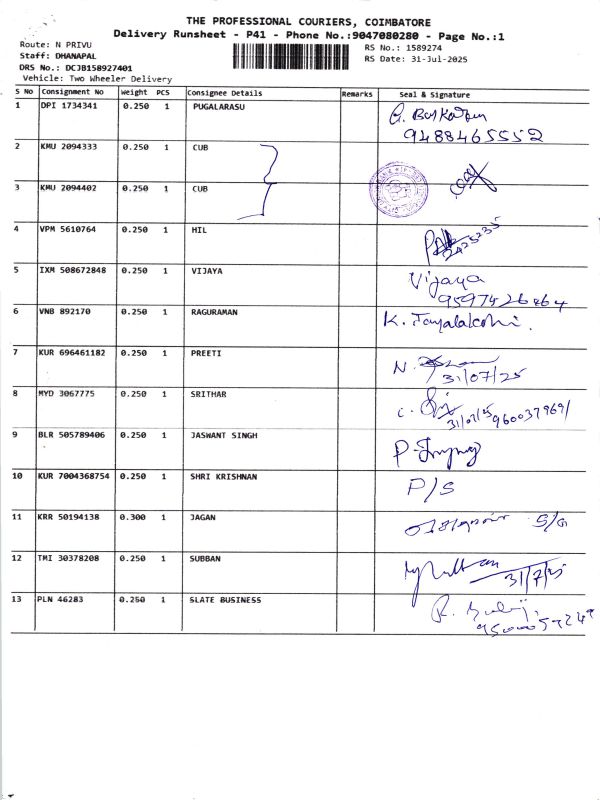 THE PROFESSIONAL COURIERS, COIMBATORE
Delivery Runsheet - P41 - Phone No.:9047080280 - Page No.:1
Route: N PRIVU RS No.: 1589274
Staff: DHANAPAL RS Date: 31-Jul-2025
DRS No.: DCJB158927401
Vehicle: Two Wheeler Delivery
S No Consignment No Weight PCS Consignee Details Remarks Seal & Signature
1 DPI 1734341 0.250 1 PUGALARASU
9488465552
2 KMU 2094333 0.250 1 CUB
3 KMU 2094402 0.250 1 CUB
4 VPM 5610764 0.250 1 HIL
5 IXM 508672848 0.250 1 VIJAYA Vijaya
9597426464
6 VNB 892170 0.250 1 RAGURAMAN K.
7 KUR 696461182 0.250 1 PREETI N.
31/07/25
8 MYD 3067775 0.250 1 SRITHAR
31/07/25 9600379691
9 BLR 505789406 0.250 1 JASWANT SINGH
10 KUR 7004368754 0.250 1 SHRI KRISHNAN P/S
11 KRR 50194138 0.300 1 JAGAN
12 TMI 30378208 0.250 1 SUBBAN
31/7/25
13 PLN 46283 0.250 1 SLATE BUSINESS R.